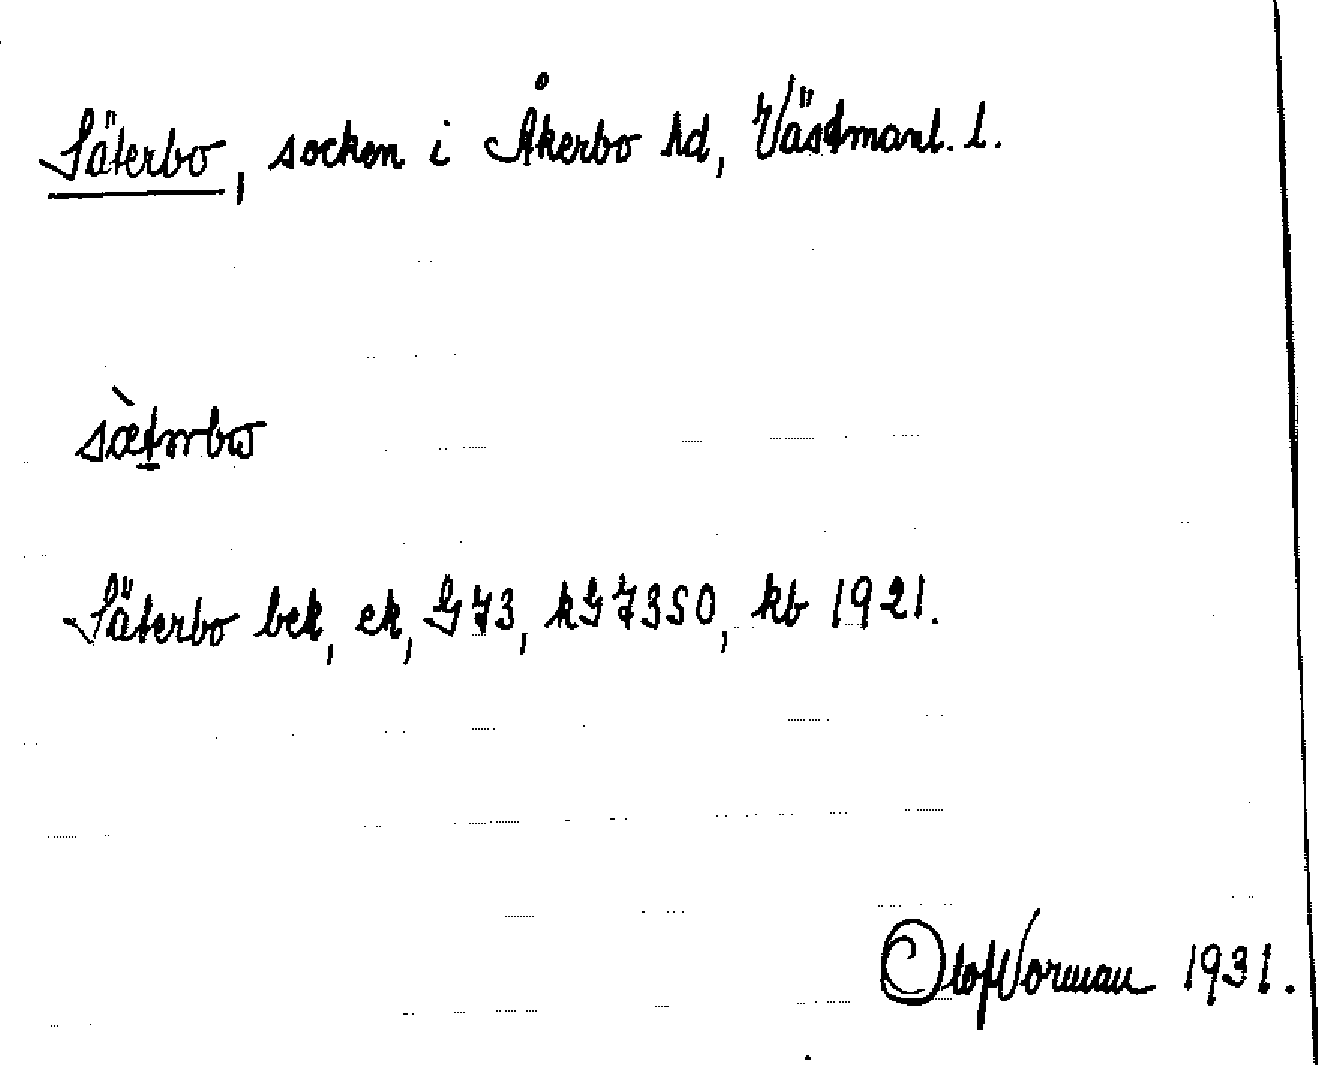 Säterbo, socken i Åkerbo hd, Västmanl. l.
sæ̀tərbω
Säterbo bek, ek, G73, kG73SO, kb 1921.
Olof Vorman 1931.